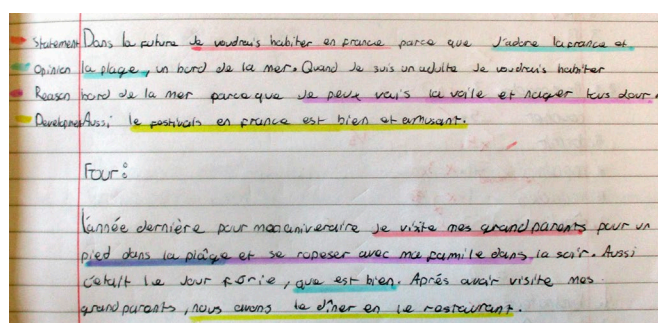 Statement Dans la future Je voudrais habiter en france parce que J'adore la france et
Opinion la plage, un bord de la mer. Quand Je suis un adulte Je voudrais habiter
Reason bord de la mer parce que Je peux vais la voile et nager tous Jour.
Development Aussi le festivals en france est bien et amusant.
Four:
L'année dernière pour mon aniveraire Je visite mes grandparents pour un
pied dans la plâge et se reposer avec ma famille dans la soir. Aussi
c'etait le Jour férie, que est bien. Aprés avoir visite mes
grandparents, nous avons le dîner en le restaurant.